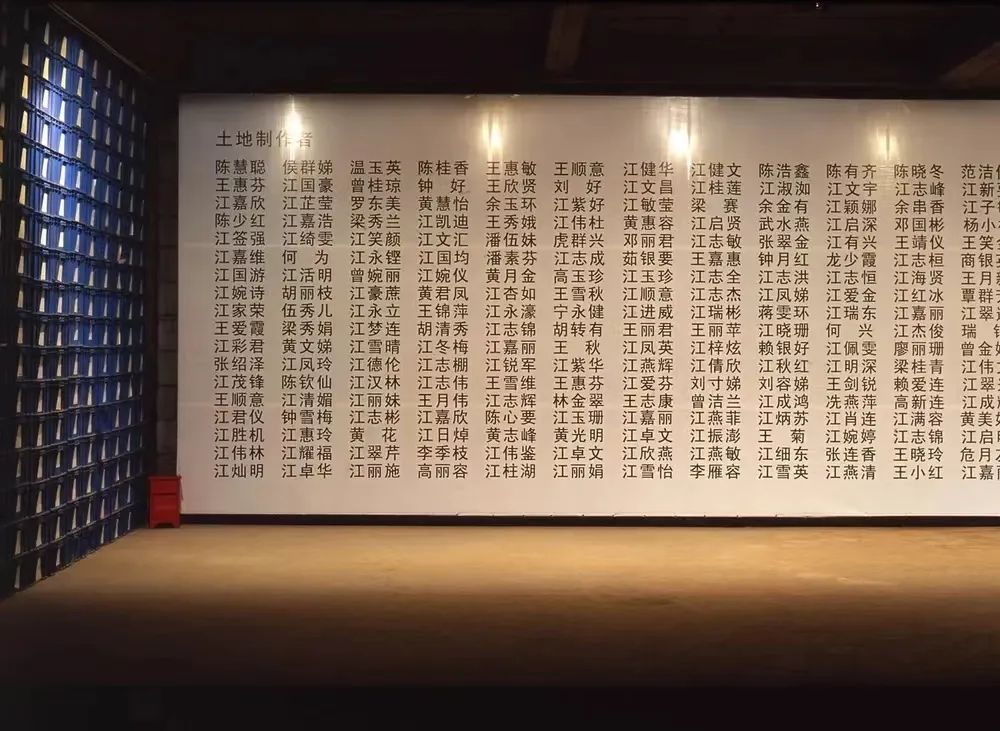 土地制作者
陈慧聪 侯群娣 温玉英 陈桂香 王惠敏 王顺意 江健华 江健文 陈浩鑫 陈有齐 陈晓冬
王惠芬 江国豪 曾桂琼 钟好 王欣贤 刘好 江文昌 江桂莲 江淑洳 江文宇 江志峰
江嘉欣 江芷莹 罗东美 黄慧怡 余玉环 江紫好 江敏莹 梁赛 余金有 江颖娜 余串香
陈少红 江嘉浩 梁秀兰 江凯迪 王秀娥 江伟杜 黄惠容 江启贤 武水燕 江启深 邓国彬
江签强 江绮雯 江笑颜 江文汇 潘伍妹 虎群兴 邓丽君 江志敏 张翠金 江有兴 王靖仪
江嘉维 何为 江永铿 江国均 潘素芬 江志成 茹银要 王嘉惠 钟月红 龙少霞 江志桓
江国游 江活明 曾婉丽 江婉仪 黄月金 高玉珍 江玉珍 江志全 江志洪 江志恒 江海贤
江婉诗 胡丽枝 江豪蔗 黄君凤 江杏如 王雪秋 江顺意 江志杰 江凤娣 江爱金 江红冰
江家荣 伍秀儿 江永立 王锦萍 江永濠 宁永健 江进威 江瑞彬 蒋雯环 江瑞东 江嘉丽
王爱霞 梁秀娟 江梦连 胡清秀 江志锦 胡转有 王丽君 王丽苹 江晓珊 何兴 江杰俊
江彩君 黄文娣 江雪晴 江冬梅 江嘉丽 王秋 江凤英 江梓炫 赖银好 江佩雯 廖丽珊
张绍泽 江凤玲 江德伦 江志棚 江锐军 江紫华 江燕辉 江倩欣 江秋红 江明深 梁桂青
江茂锋 陈钦仙 江汉林 江志伟 王雪维 王惠芬 江爱芬 刘寸娣 刘容娣 王剑锐 赖爱连
王顺意 江清媚 江丽妹 王月伟 江志辉 林金翠 王志康 曾洁兰 江成鸿 冼燕萍 高新连
江君仪 钟雪梅 江志彬 江嘉欣 陈心要 江玉珊 江嘉丽 江燕菲 江炳苏 江肖连 江满容
江胜机 江惠玲 黄花 江日焯 黄志峰 黄光明 江卓文 江振澎 王菊 江婉婷 江志锦
江伟林 江耀福 江翠芹 李季枝 江伟鉴 江卓文 江欣燕 江燕敏 江细东 张连香 王晓玲
江灿明 江卓华 江丽施 高丽容 江柱湖 江丽娟 江雪怡 李雁容 江雪英 江燕清 王小红